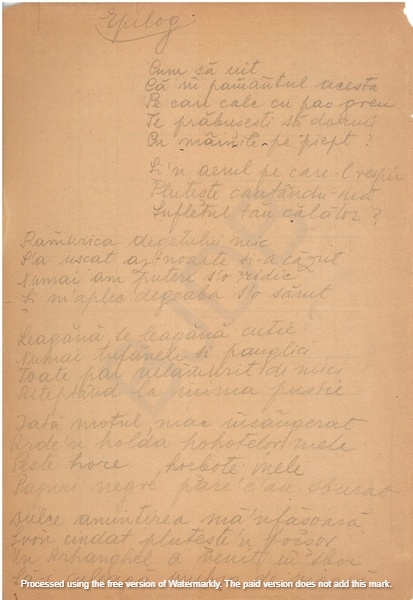 Epilog
Cum să uit
Că în pământul acesta
Pe care calc cu pas greu
Te prăbușești să dormi
Cu mâinile pe piept ?
Și'n aerul pe care-l respir
Plutește căutându-mă
Sufletul tău călător ?
Rămurica degetului mic
S'a uscat az' noapte și-a căzut
Numai am puteri s'o ridic
Și m'aplec degeaba s'o sărut
Leagănă, te leagănă cutie
Numai tufănele și panglici
Toate par nelămurit de mici
Așteptând la inima pustie
Iată motul, mac însângerat
Arde'n holda hohotelor mele
Peste hore horbote mele
Papuri negre pare c'au sburat
Dulce amintirea mă'nfășoară
Svon cândat plutește'n
Un Arhanghel a venit în sbor
Processed using the free version of Watermarkly. The paid version does not add this mark.